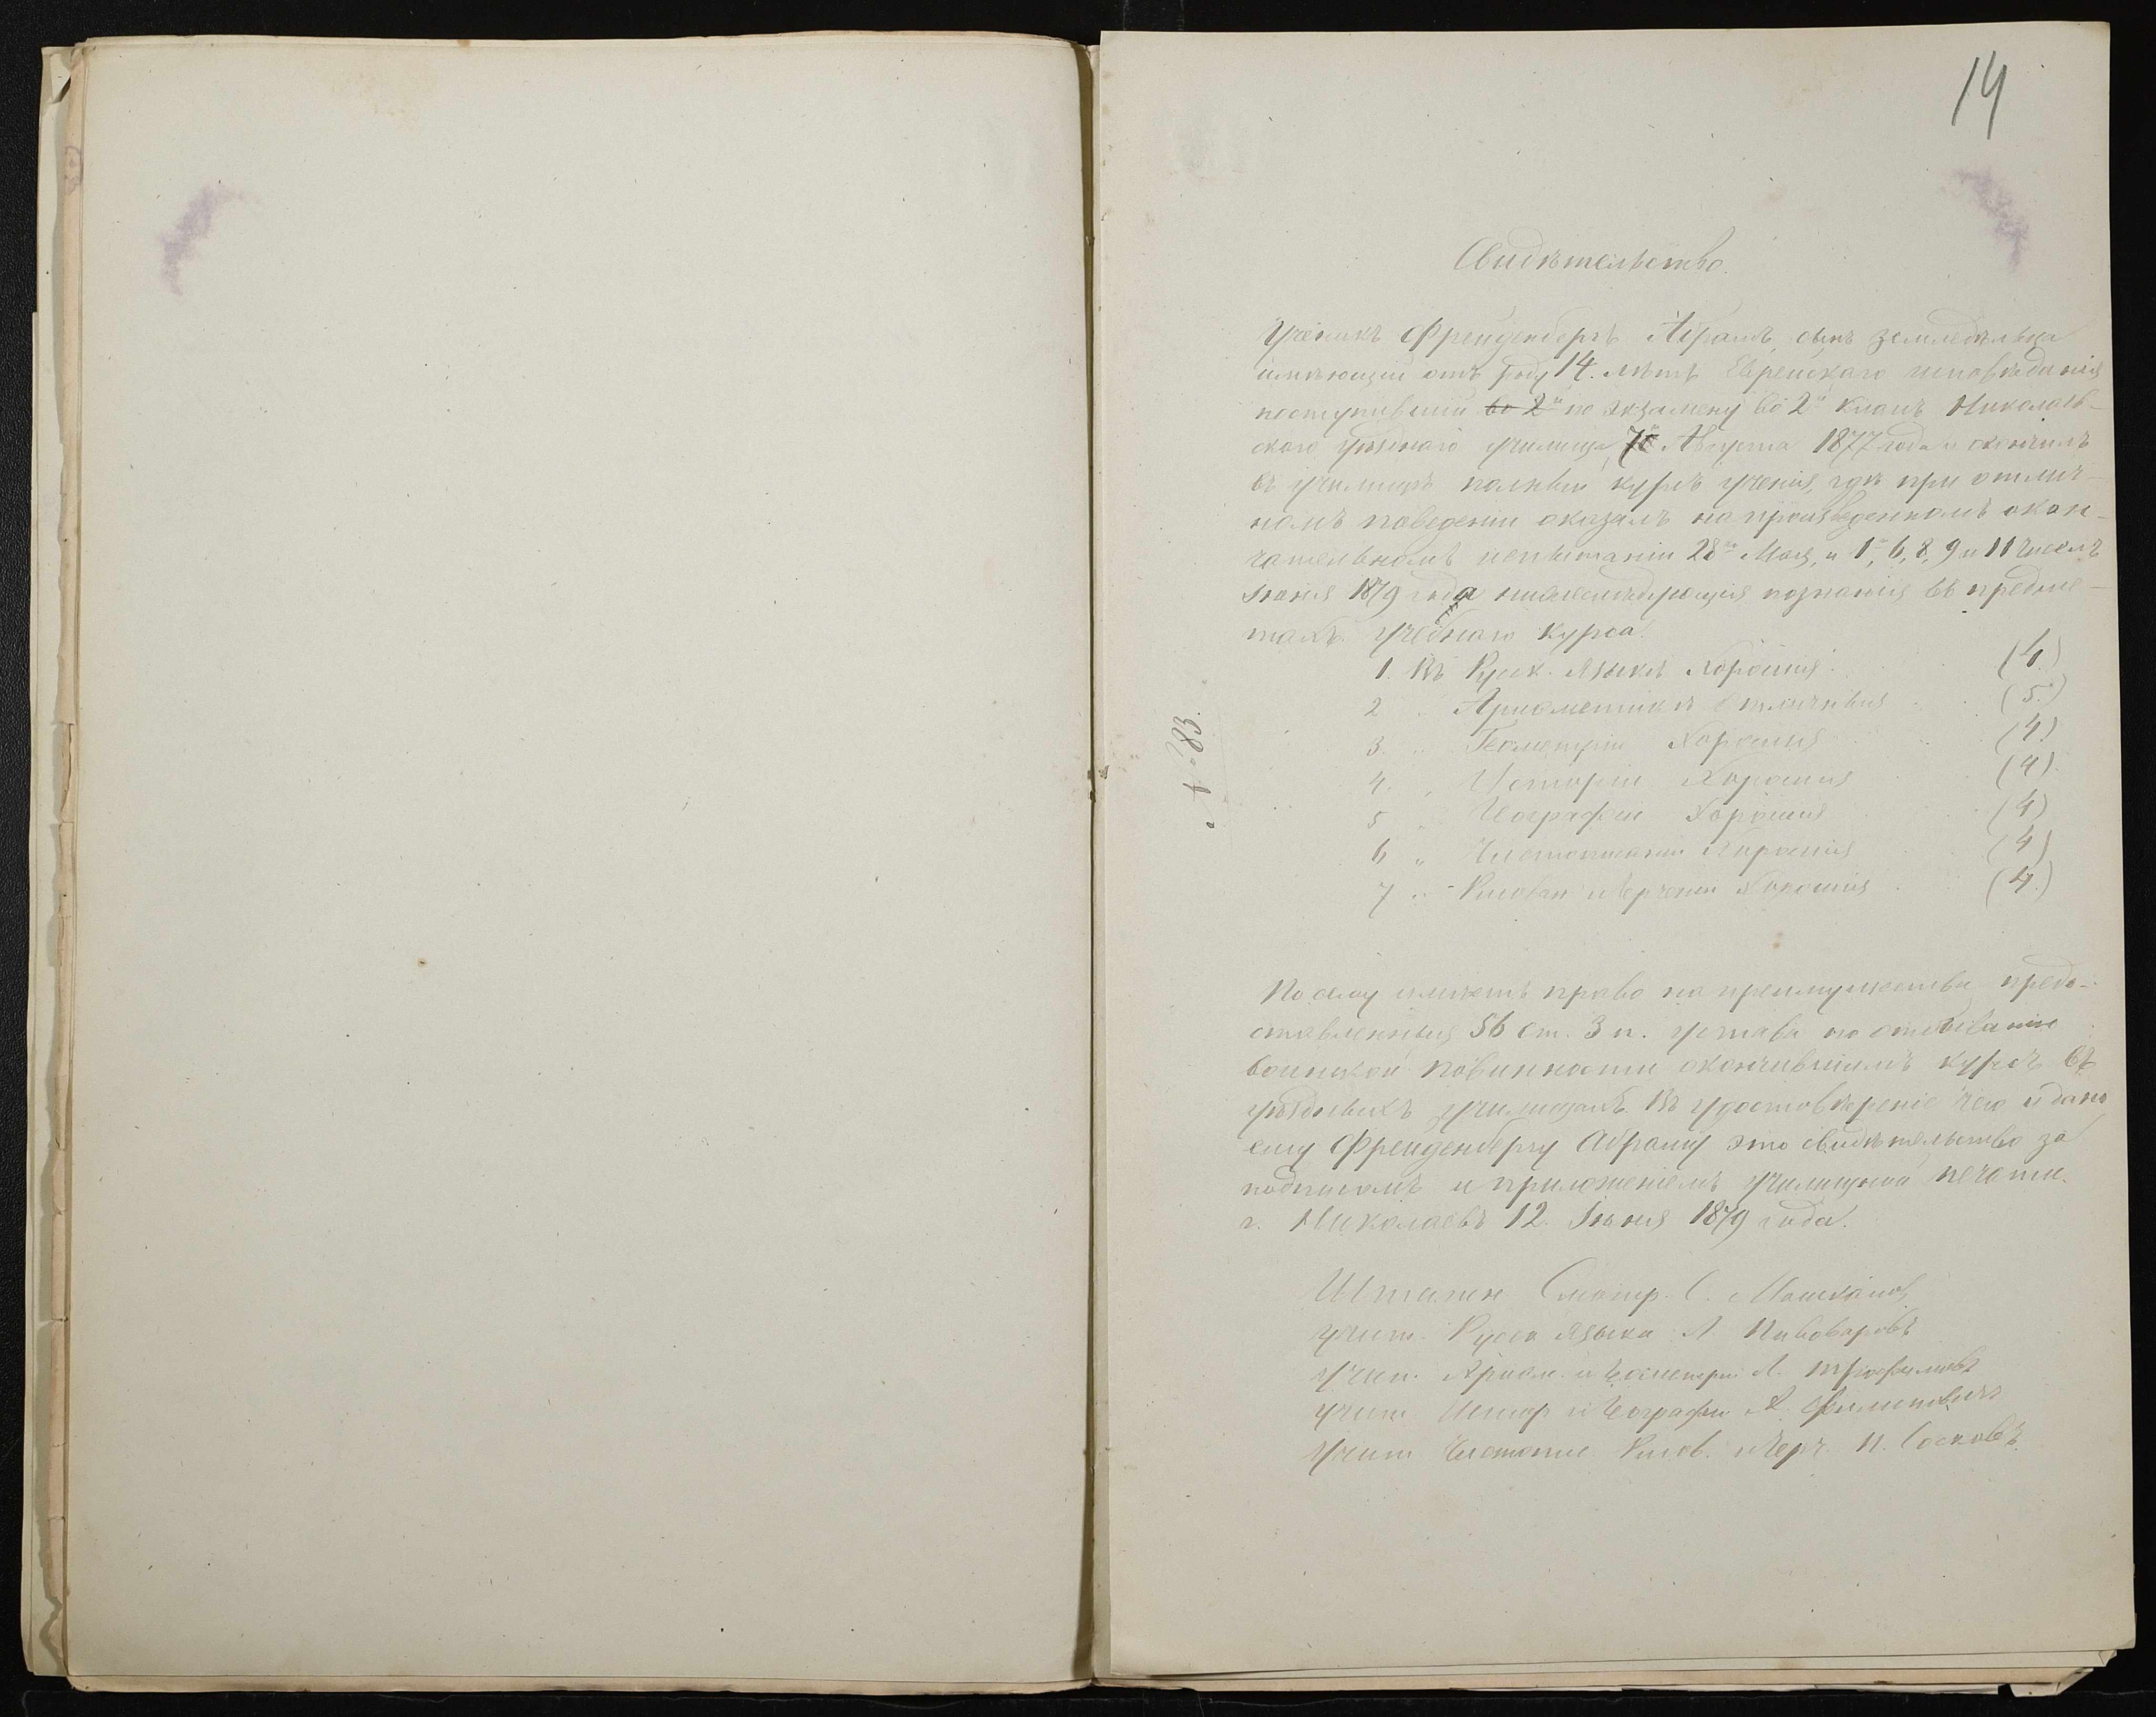 14
Свидѣтельство.
Ученикъ Фрейденбергъ Абрамъ, сынъ земледѣльца
имѣющій отъ роду 14. лѣтъ Еврейскаго исповѣданія
поступившій во 2й по экзамену во 2й класъ Николаев-
скаго уѣзднаго училища, 7го Августа 1877 года и окончилъ
въ училищѣ полный курсъ ученія, гдѣ при отлич-
номъ поведеніи оказалъ на произведенномъ окон-
чательномъ испытаніи 28го Мая, и 1го, 6, 8, 9 и 11 Числъ
Іюня 1879 года нижеслѣдующія познанія въ предме-
тахъ учебнаго курса.
1. Въ Руск. Языкѣ Хорошія. (4.)
2 " Ариѳметикѣ Отличныя (5.)
3. " Геометріи Хорошія (4)
4. " Исторіи Хорошія (4).
5 " Географіи Хорошія (4)
6 " Чистописаніи Хорошія (4)
7 " Рисован. и Черченіи Хорошія (4.)
№ 83.
По сему имѣетъ право на преимущества, предо-
ставленныя 56 ст. 3 п. устава по отбыванію
воинской повинности окончившимъ курсъ въ
уѣздныхъ училищахъ. Въ удостовѣреніе чего и дано
ему Фрейденбергу Абраму это свидѣтельство за
подписомъ и приложеніемъ училищной печати.
г. Николаевъ 12. Іюня 1879 года.
Штатн Смотр. С.
Учит. Русск Языка А Пивоваровъ
Учит. Ариѳм. и Геометріи А. Трофимовъ
Учит. Истор и Географіи А. Филиповичъ
Учит Чистопис. Рисов. и Черч. П. Сосновъ